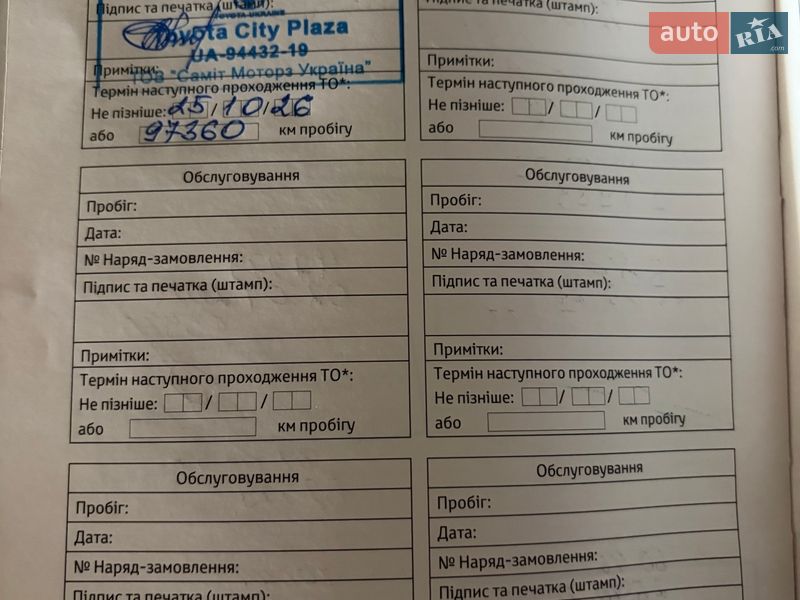 Підпис та печатка (штамп):
TOYOTA-UKRAINE
Toyota City Plaza
UA-94432-19
ТОВ "Саміт Моторз Україна"
Примітки:
Термін наступного проходження ТО*:
Не пізніше: 25/10/26
або 97360 км пробігу
Підпис та печатка (штамп):
Примітки:
Термін наступного проходження ТО*:
Не пізніше: / /
або км пробігу
Обслуговування
Пробіг:
Дата:
№ Наряд-замовлення:
Підпис та печатка (штамп):
Примітки:
Термін наступного проходження ТО*:
Не пізніше: / /
або км пробігу
Обслуговування
Пробіг:
Дата:
№ Наряд-замовлення:
Підпис та печатка (штамп):
Примітки:
Термін наступного проходження ТО*:
Не пізніше: / /
або км пробігу
Обслуговування
Пробіг:
Дата:
№ Наряд-замовлення:
Підпис та печатка (штамп):
Обслуговування
Пробіг:
Дата:
№ Наряд-замовлення:
Підпис та печатка (штамп):
auto RIA .com